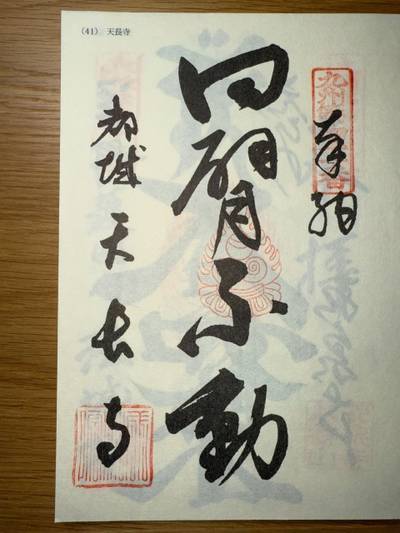 (41) 天長寺
奉納
四臂不動
都城 天長寺